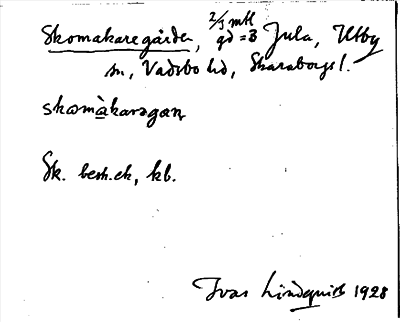 Skomakaregården, 2/3 mtl
gd = 3 Jula, Utby
sn, Vadsbo hd, Skaraborgs l.
skomàkaragaɳ
Sk. besh. eh, kb.
Ivar Lindquist 1928